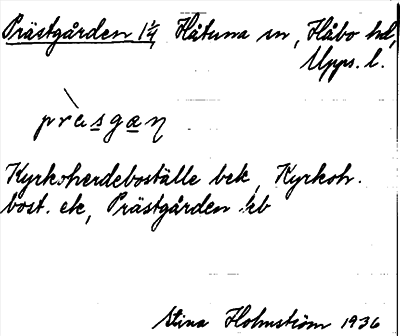 Prästgården 1 1/4, Håtuna sn, Håbo hd,
Upps. l.
prὰsgan
Kyrkoherdeboställe bek, Kyrkoh.
bost. ek, Prästgården kb
Stina Holmström 1936